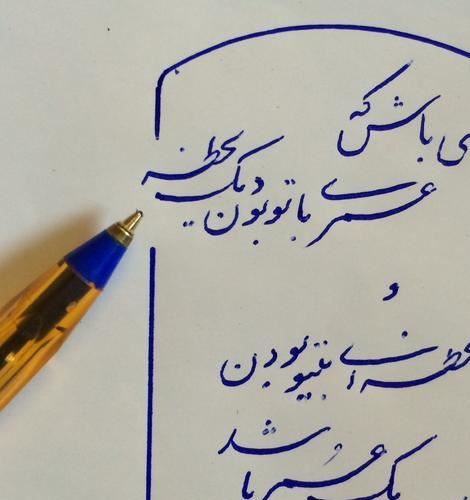 باش که
عمری با تو بودن یک لحظه
و
لحظه ای بی تو بودن
یک عمر باشد